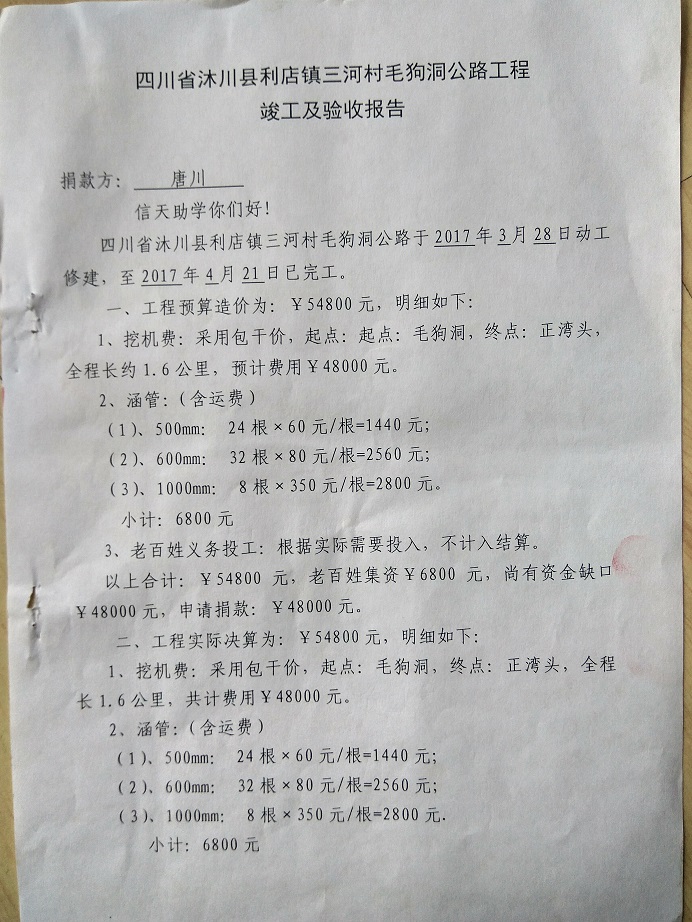 四川省沐川县利店镇三河村毛狗洞公路工程
竣工及验收报告
捐款方： 唐川
信天助学你们好！
四川省沐川县利店镇三河村毛狗洞公路于 2017 年 3 月 28 日动工
修建，至 2017 年 4 月 21 日已完工。
一、工程预算造价为：￥54800 元，明细如下：
1、挖机费：采用包干价，起点：起点：毛狗洞，终点：正湾头，
全程长约 1.6 公里，预计费用￥48000 元。
2、涵管：（含运费）
（1）、500mm： 24 根×60 元/根=1440 元；
（2）、600mm： 32 根×80 元/根=2560 元；
（3）、1000mm： 8 根×350 元/根=2800 元。
小计：6800 元
3、老百姓义务投工：根据实际需要投入，不计入结算。
以上合计：￥54800 元，老百姓集资￥6800 元，尚有资金缺口
￥48000 元，申请捐款：￥48000 元。
二、工程实际决算为：￥54800 元，明细如下：
1、挖机费：采用包干价，起点：毛狗洞，终点：正湾头，全程
长 1.6 公里，共计费用￥48000 元。
2、涵管：（含运费）
（1）、500mm： 24 根×60 元/根=1440 元；
（2）、600mm： 32 根×80 元/根=2560 元；
（3）、1000mm： 8 根×350 元/根=2800 元.
小计：6800 元